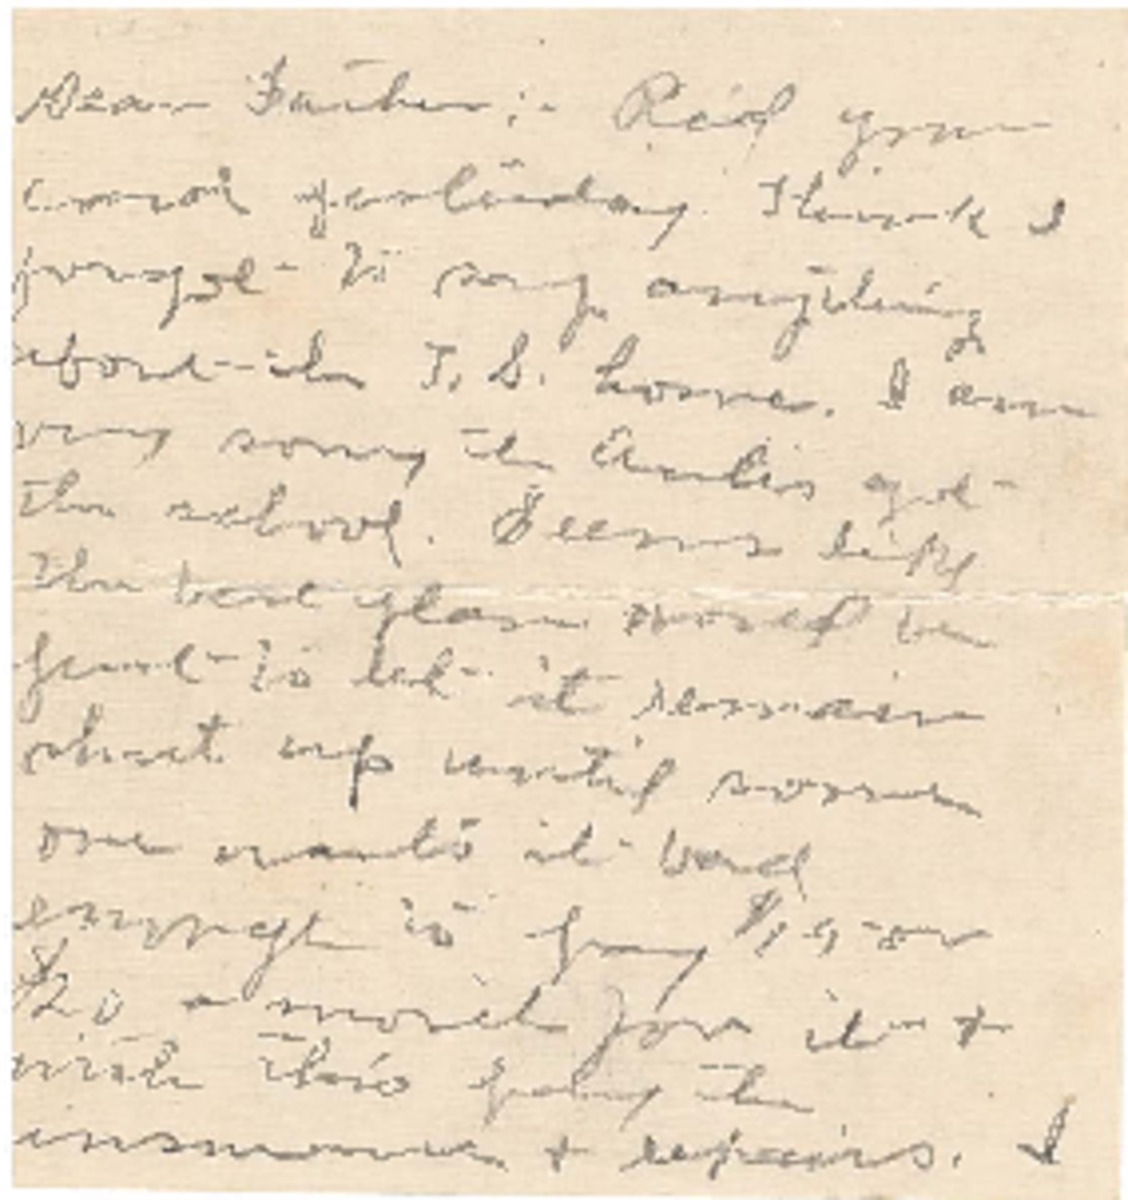 Dear Father:- Rec'd your
card yesterday. Think I
forgot to say anything
about the T. S. home. I am
very sorry the got
the school. Seems like
the best plan would be
just to let it remain
shut up until some
one wants it bad
enough to pay $15 or
$20 a month for it &
with this pay the
insurance & repairs. I